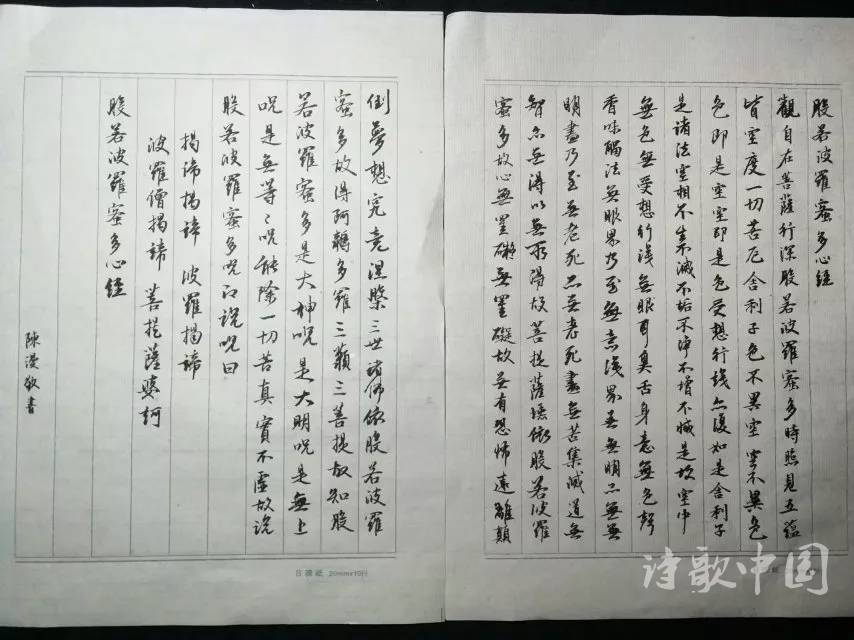 般若波羅蜜多心經
觀自在菩薩行深般若波羅蜜多時照見五蘊
皆空度一切苦厄舍利子色不異空空不異色
色即是空空即是色受想行識亦復如是舍利子
是諸法空相不生不滅不垢不淨不增不減是故空中
無色無受想行識無眼耳鼻舌身意無色聲
香味觸法無眼界乃至無意識界無無明亦無無
明盡乃至無老死亦無老死盡無苦集滅道無
智亦無得以無所得故菩提薩埵依般若波羅
蜜多故心無罣礙無罣礙故無有恐怖遠離顛
倒夢想究竟涅槃三世諸佛依般若波羅
蜜多故得阿耨多羅三藐三菩提故知般
若波羅蜜多是大神呪是大明呪是無上
呪是無等々呪能除一切苦真實不虛故說
般若波羅蜜多呪即說呪曰
揭諦揭諦 波羅揭諦
波羅僧揭諦 菩提薩婆訶
般若波羅蜜多心經
陳漫敬書
20mm×10行
诗歌中国